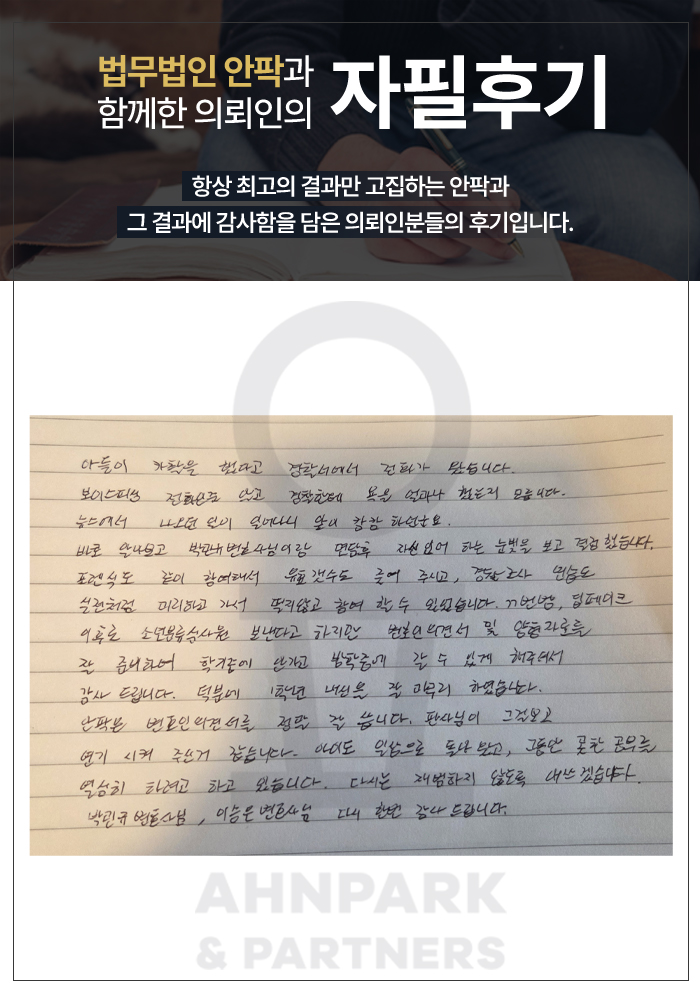 법무법인 안팍과
함께한 의뢰인의
자필후기
항상 최고의 결과만 고집하는 안팍과
그 결과에 감사함을 담은 의뢰인분들의 후기입니다.
아들이 카촬을 했다고 경찰서에서 전화가 왔습니다.
보이스피싱 전화인줄 알고 경찰한테 욕을 얼마나 했는지 모릅니다.
뉴스에서 나오던 일이 일어나니 앞이 캄캄 하더군요.
바로 알아보고 박민규변호사님이랑 면담후 자신있어 하는 눈빛을 보고 결정 했습니다.
포렌식도 같이 참여해서 유효갯수도 줄여 주시고, 경찰조사 연습도
실전처럼 미리하고 가서 떨지않고 참여 할 수 있었습니다. n번방, 딥페이크
이후로 소년분류심사원 보낸다고 하지만 변호인의견서 및 양형자료를
잘 준비하여 학기중에 안가고 방학중에 갈 수 있게 해주셔서
감사 드립니다. 덕분에 1학년 내신을 잘 마무리 하였습니다.
안팍은 변호인의견서를 정말 잘 씁니다. 판사님이 그걸보고
연기 시켜 주신거 같습니다. 아이도 일상으로 돌아 왔고, 그동안 못한 공부를
열심히 하려고 하고 있습니다. 다시는 재범하지 않도록 애쓰겠습니다.
박민규변호사님, 이승은변호사님 다시 한번 감사 드립니다.
AHNPARK
& PARTNERS